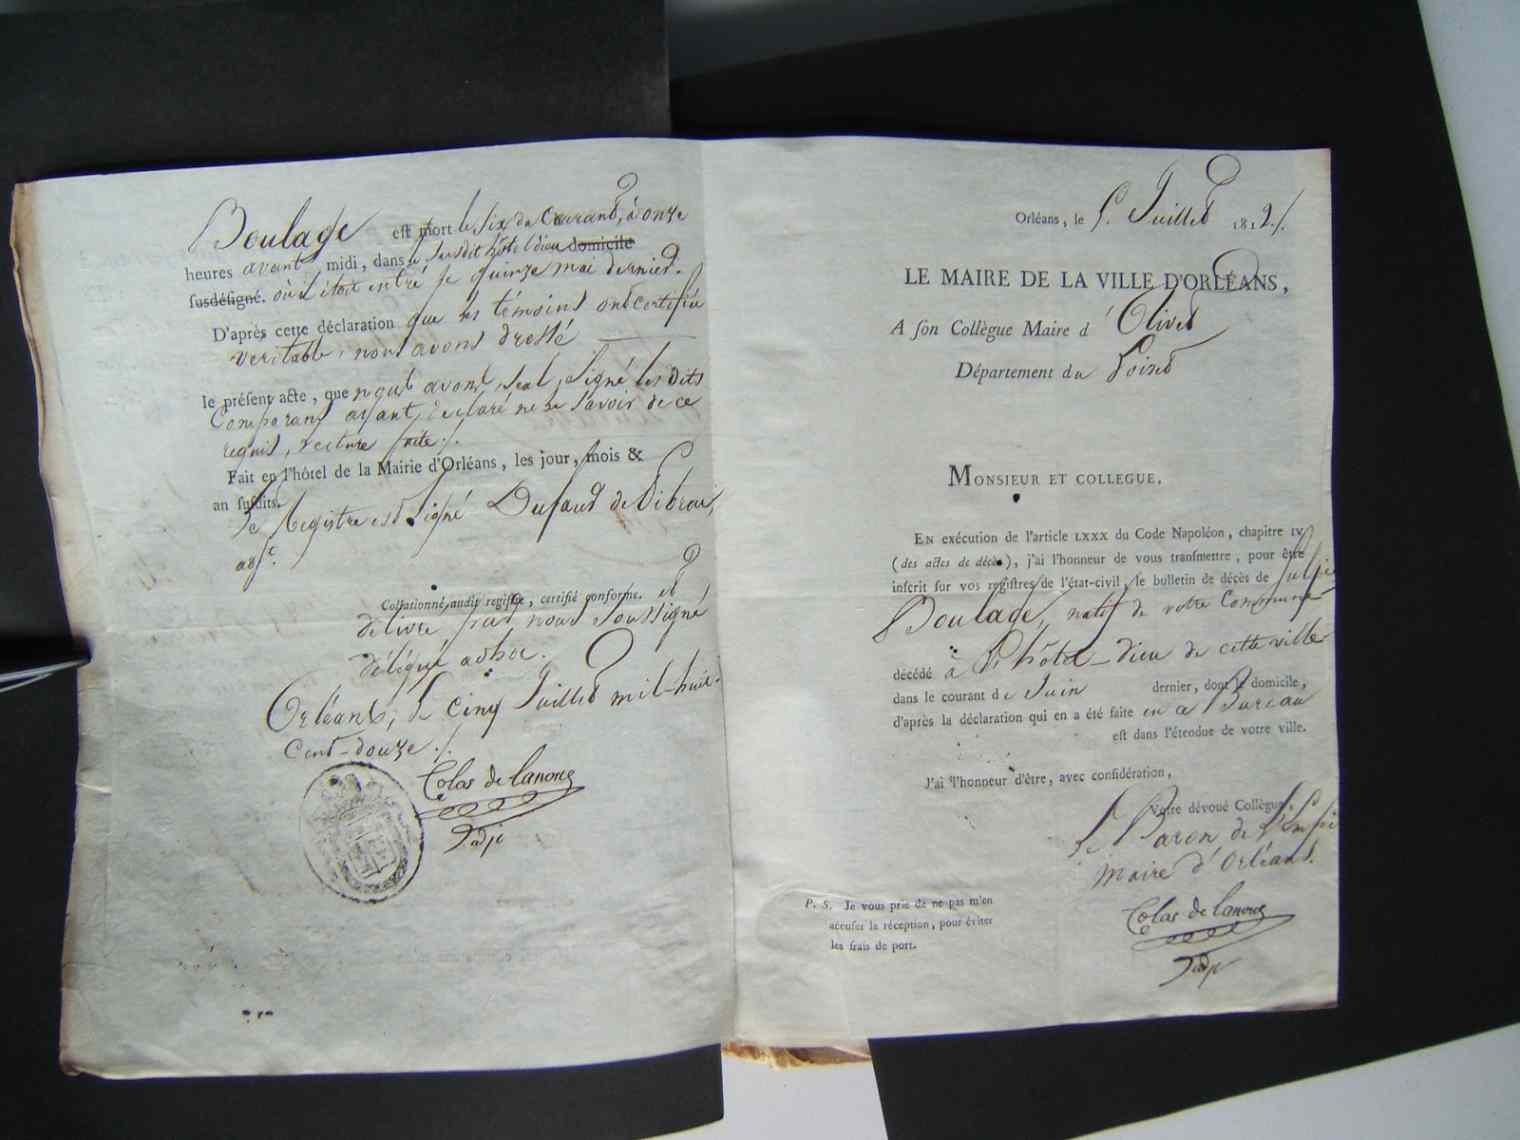 Boulage est mort le six du Courant, à onze
heures avant midi, dans le susdit hôtel dieu domicile
susdésigné. où il étoit entré le quinze mai dernier.
D'après cette déclaration que les témoins ont certifié
veritable, nous avons dressé
le présent acte, que nous avons seul signé les dits
Comparans ayant déclaré ne le savoir de ce
requis, lecture faite ./.
Fait en l'hôtel de la Mairie d'Orléans, les jour, mois &
an susdits.
Le Registre est signé Dufaur de Pibrac,
adjt.
Collationné audit registre, certifié conforme. et
délivré par nous soussigné
délégué adhoc.
Orléans, le cinq Juillet mil-huit-
Cent-douze ./.
Colas de lanoue
adjt
Orléans, le 5. Juillet 1812./.
LE MAIRE DE LA VILLE D'ORLÉANS,
A son Collègue Maire d'Olivet
Département du Loiret
MONSIEUR ET COLLEGUE,
EN exécution de l'article LXXX du Code Napoléon, chapitre IV
(des actes de décès), j'ai l'honneur de vous transmettre, pour être
inscrit sur vos registres de l'état-civil, le bulletin de décès de
Boulage, natif de votre Commune
décédé à l'hôtel-dieu de cette ville
dans le courant de Juin dernier, dont le domicile,
d'après la déclaration qui en a été faite en ce Bureau
est dans l'étendue de votre ville.
J'ai l'honneur d'être, avec considération,
Votre dévoué Collègue,
Le Baron de l'Empire
Maire d'Orléans.
Colas de lanoue
adjt
P. S. Je vous prie de ne pas m'en
accuser la réception, pour éviter
les frais de port.